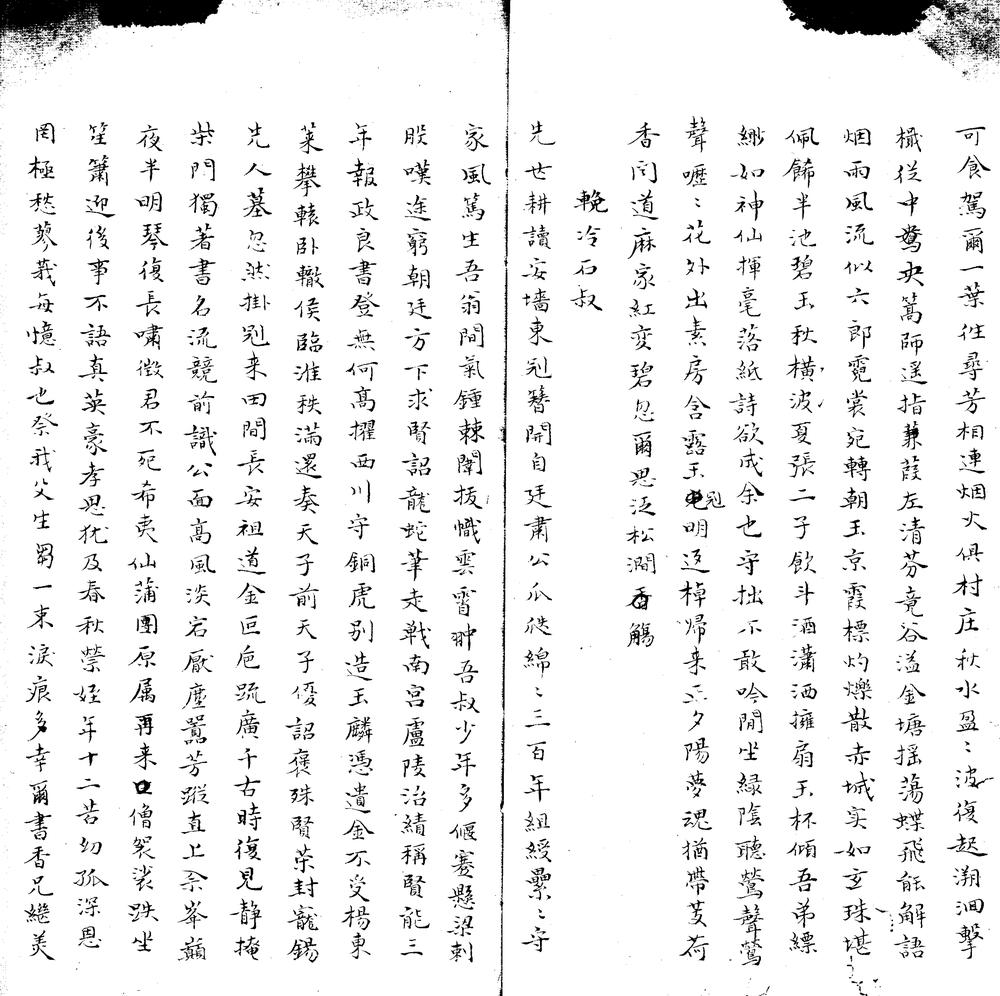 可食駕爾一葉徃尋芳相連烟火俱村庄秋水盈〻波復起溯洄擊
檝從中驚央篙師遥指蒹葭左清芬竟谷溢金塘摇蕩蝶飛能解語
烟雨風流似六郎霓裳宛轉朝玉京霞標灼爍散赤城实如玄珠堪
佩餙半池碧玉秋横波夏張二子飲斗酒瀟洒擁扇玉杯傾吾弟縹
緲如神仙揮毫落紙詩欲成余也守拙不敢吟閒坐緑陰聽鶯聲鶯
聲嚦〻花外出素房含露玉冠明返棹帰来正夕陽夢魂猶帶芰荷
香問道麻家紅变碧忽爾思泛松澗觴
輓冷石叔
先世耕讀安墻東冠簪開自廷肅公瓜瓞綿〻三百年組綬纍〻守
家風篤生吾翁間氣鍾棘闈拔幟雲霄翀吾叔少年多偃蹇懸梁刺
股嘆途窮朝廷方下求賢詔龍蛇筆走戦南宫盧陵治績稱賢能三
年報政良書登無何髙擢西川守銅虎别造玉麟憑遺金不受楊東
莱攀轅卧轍侯臨淮秩滿還奏天子前天子優詔褒殊賢荣封寵錫
先人墓忽然掛冠来田間長安祖道金叵卮䟽廣千古時復見静掩
柴門獨著書名流競前識公面髙風淡宕厭塵囂芳蹤直上佘峯巔
夜半明琴復長嘯微君不死希夷仙蒲團原属再来僧袈裟趺坐
笙簫迎後事不語真英豪孝思犹及春秋嘗姪年十二苦幼孤深恩
罔極愁蓼莪每憶叔也祭我父生芻一束淚痕多幸爾書香兄繼美